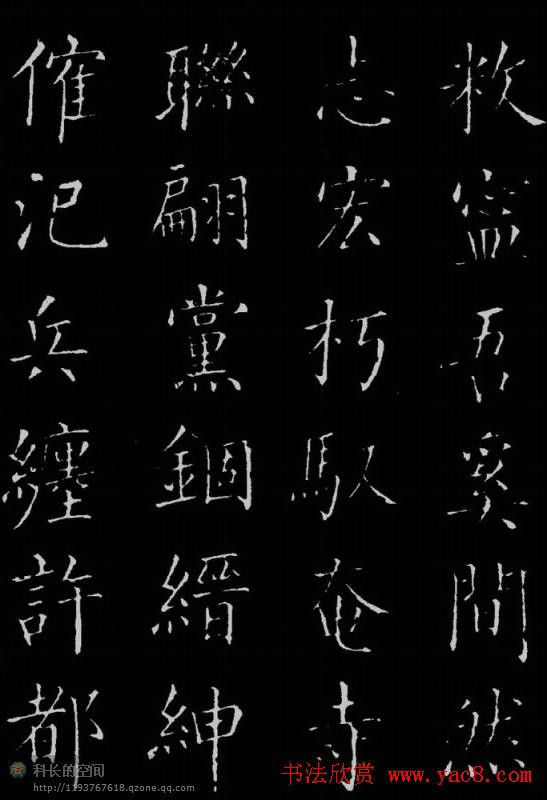 敉寍吾奚間然
志宏朽馭奄寺
聯翩黨錮縉紳
傕汜兵纏許都
科长的空间
http://1393767618.qzone.qq.com
书法欣赏 www.yac8.com